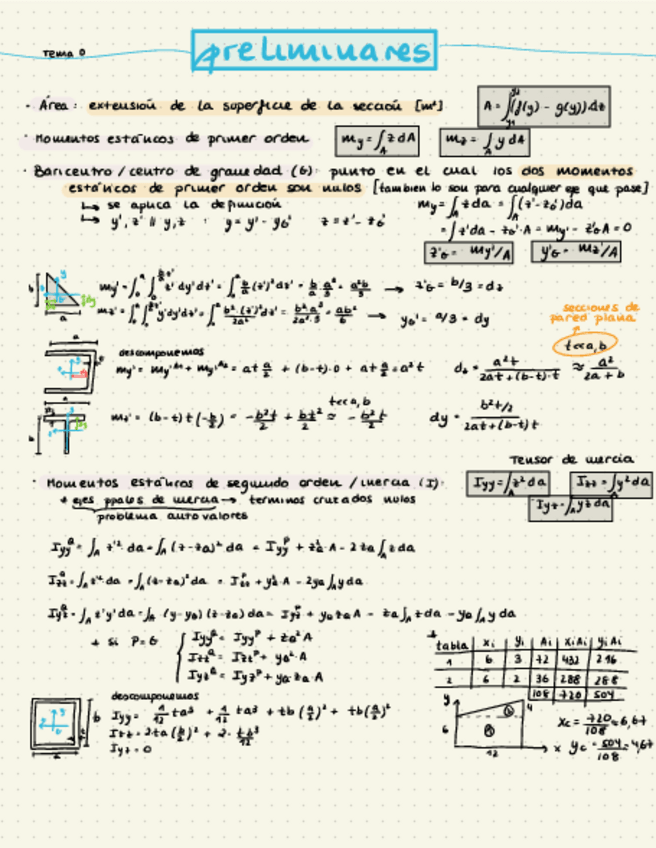 Tema 0
preliminares
· Área: extensión de la superficie de la sección [m²] A = ∫(f(y) - g(y))dz
· Momentos estáticos de primer orden my = ∫A z dA mz = ∫A y dA
· Baricentro / centro de gravedad (G): punto en el cual los dos momentos
estáticos de primer orden son nulos [también lo son para cualquier eje que pase]
↳ se aplica la definición my = ∫A z da = ∫A (z' - zG') da
↳ y', z' ∥ y, z : y = y' - yG' z = z' - zG'
= ∫ z' da - zG' · A = my' - zG' A = 0
z'G = my'/A y'G = mz'/A
→ z'G = b/3 = dz
→ yG' = a/3 = dy
secciones de
pared plana
t<<a, b
descomponemos
my' = my'A1 + my'A2 = at a/2 + (b-t)·0 + at a/2 = a²t
dz = a²t / 2at + (b-t)·t ≈ a² / 2a + b
t<<a, b
mz' = (b-t) t (-b/2) = -b²t/2 + bt²/2 ≈ -b²t/2
dy = b²t/2 / 2at + (b-t) t
Tensor de inercia
· Momentos estáticos de segundo orden / inercia (I): Iyy = ∫A z² da Izz = ∫A y² da
* ejes ppales de inercia → términos cruzados nulos Iyz = ∫A yz da
problema autovalores
IyyQ = ∫A z'² da = ∫A (z - za)² da = IyyP + za² · A - 2za ∫A z da
IzzQ = ∫A z'² da = ∫A (z - za)² da = IzzP + ya² · A - 2ya ∫A y da
IyzQ = ∫A z'y' da = ∫A (y - ya)(z - za) da = IyzP + ya za A - za ∫A z da - ya ∫A y da
* si P=G
IyyQ = IyyP + za² A
IzzQ = IzzP + ya² · A
IyzQ = IyzP + ya za A
tabla xi yi Ai xiAi yiAi
1 6 3 72 432 216
2 6 2 36 288 288
108 720 504
descomponemos
Iyy = 1/12 ta³ + 1/12 ta³ + tb (a/2)² + tb (a/2)²
Izz = 2·ta (b/2)² + 2 · tb³/12
Iyz = 0
y 4
6
12 x
xc = 720/108 = 6,67
yc = 504/108 = 4,67